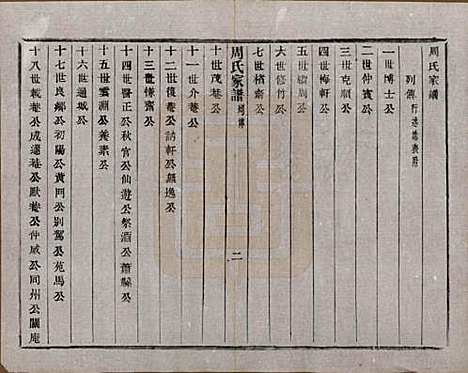 周氏家譜
列傳 行述志表附
一世博士公
二世仲賓公
三世克順公
四世梅軒公
五世
六世修竹公
七世樆齋公
周氏家譜 列傳 二
十世茂菴公
十一世介菴公
十二世復菴公訥軒公頤逸公
十三世慊齋公
十四世醫正公秋官公仙遊公祭酒公蕭縣公
十五世雲淵公養素公
十六世通城公
十七世良鄉公初陽公黄冈公別駕公苑馬公
十八世載菴公成還菴公歐菴公仲威公同州公關庵